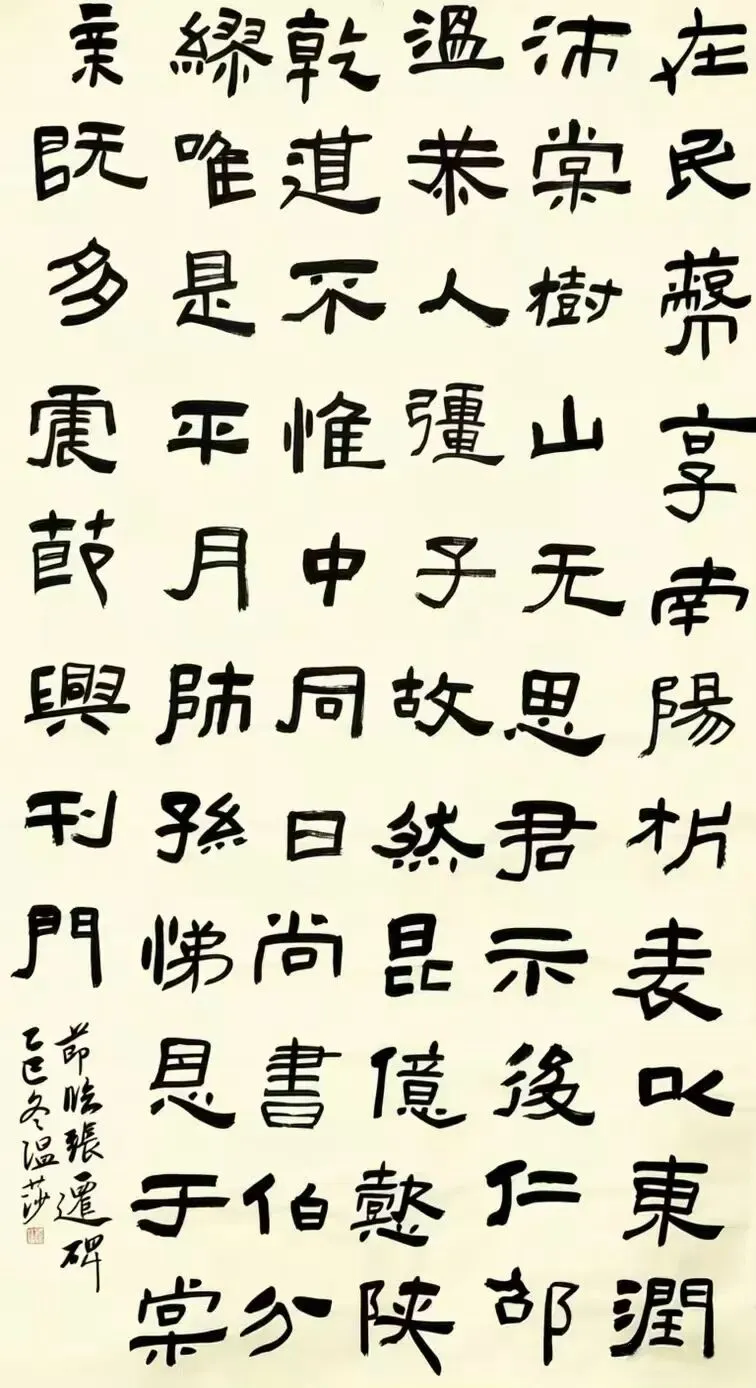 在民享南陽析表以東潤
沛棠樹山无思君示後仁邵
溫恭人彊子故然昆億懿陕
乾道不惟中同日尚書伯分
繆唯是平月師孫悌恩于棠
既多震節興刊門
節臨張遷碑
乙巳冬温莎